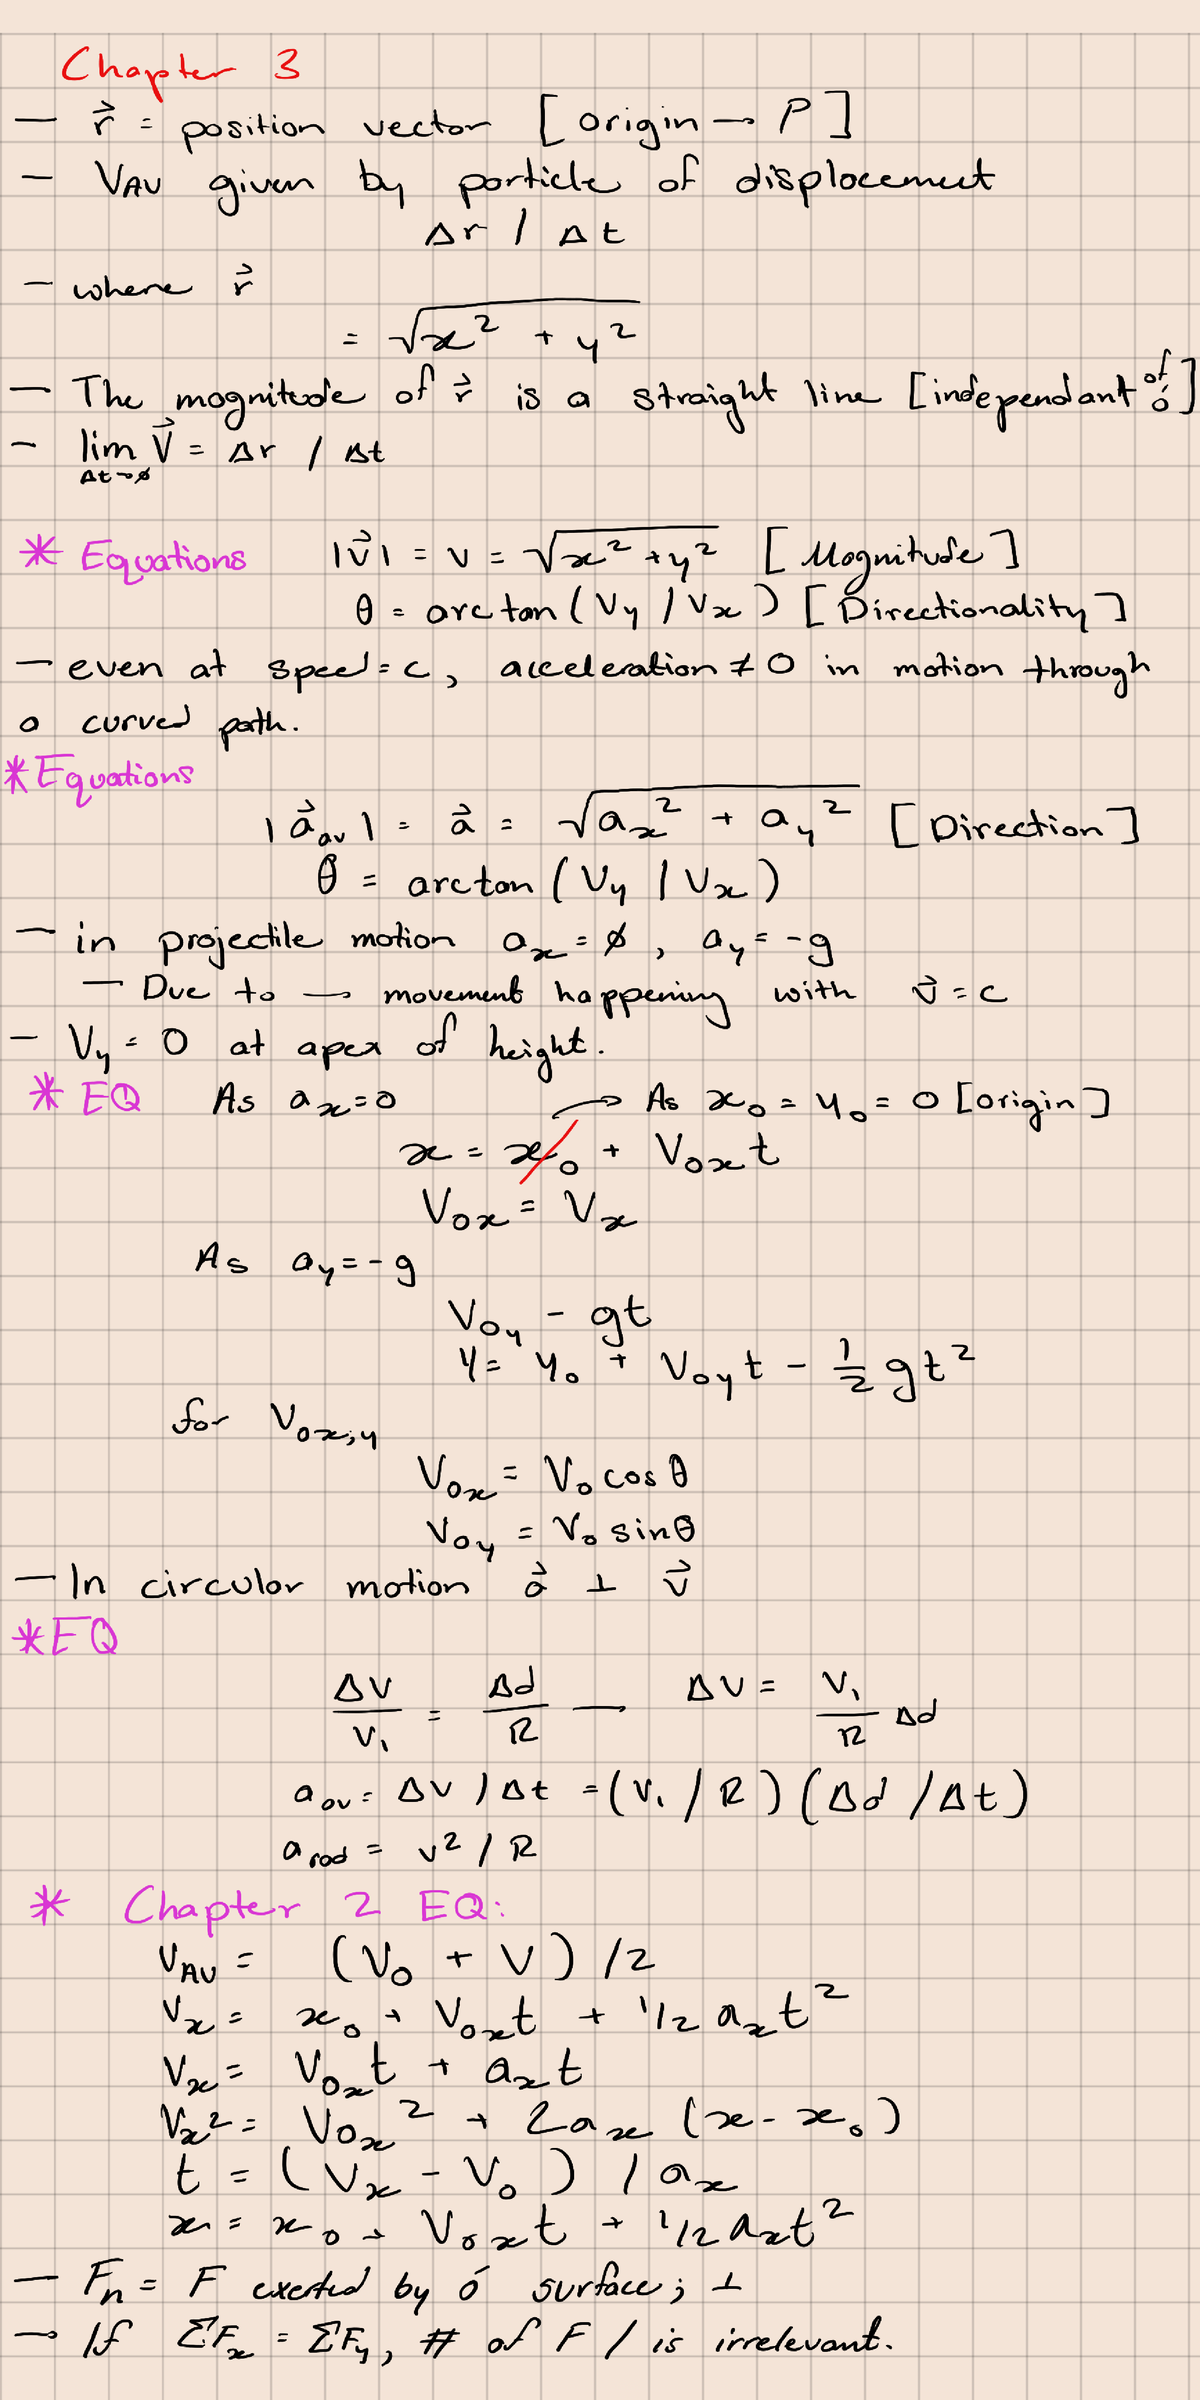 Chapter 3
— r⃗ = position vector [origin → P]
— VAV given by particle of displacement
Δr / Δt
— where r⃗
= √x² + y²
— The magnitude of r⃗ is a straight line [independant of ô]
— lim V⃗ = Δr / Δt
Δt→∅
* Equations |v⃗| = v = √x² + y² [Magnitude]
θ = arctan(Vy / Vx) [Directionality]
— even at speed = c, acceleration ≠ 0 in motion through
a curved path.
* Equations
|a⃗av| = a⃗ = √ax² + ay² [Direction]
θ = arctan(Vy / Vx)
— in projectile motion ax = ∅, ay = -g
— Due to → movement happening with v⃗ = c
— Vy = 0 at apex of height.
* EQ As ax=0 → As x₀ = y₀ = 0 [origin]
x = x₀ + V₀x t
V₀x = Vx
As ay = -g
V₀y - gt
y = y₀ + V₀y t - ½ gt²
for V₀x;y
V₀x = V₀ cos θ
V₀y = V₀ sinθ
— In circular motion a⃗ ⊥ v⃗
* EQ
ΔV/V₁ = Δd/R — ΔV = V₁/R Δd
aav = ΔV / Δt = (V₁ / R) (Δd / Δt)
arad = v² / R
* Chapter 2 EQ:
VAV = (V₀ + V) /2
Vx = x₀ + V₀xt + 1/2 axt²
Vx = V₀xt + axt
Vx² = V₀x² + 2ax (x - x₀)
t = (Vx - V₀) / ax
x = x₀ + V₀xt + 1/2 axt²
— Fn = F exerted by ó surface; ⊥
→ If ΣFx = ΣFy, # of F / is irrelevant.